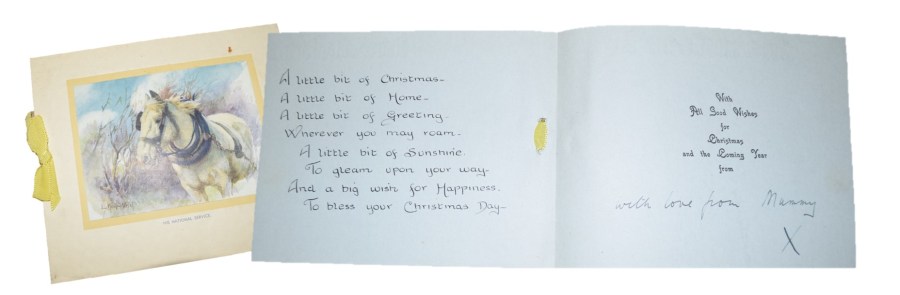 NATIONAL SERVICE
A little bit of Christmas–
A little bit of Home–
A little bit of Greeting.
Wherever you may roam–
A little bit of Sunshine.
To gleam upon your way–
And a big wish for Happiness.
To bless your Christmas Day–
With
All Good Wishes
for
Christmas
and the Coming Year
from
with love from Mummy
X